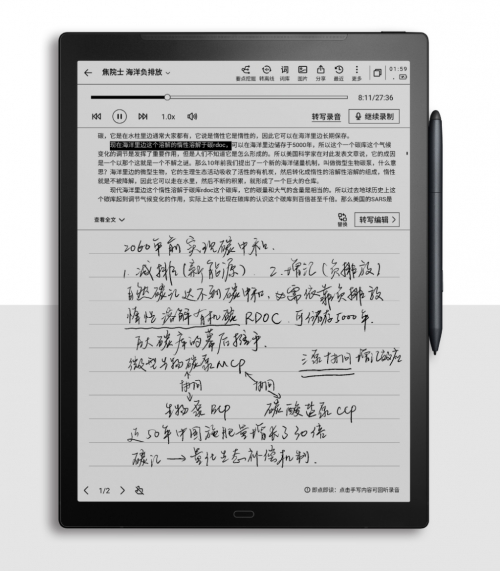 焦院士 海洋负排放
重点挖掘 转离线 词库 图片 分享 最近 更多
01:59
8:11/27:36
1.0x
转写录音
继续录制
碳，它是在水柱里边通常大家都有，它说是惰性它是惰性的，因此它可以在海洋里边长期保存。
现在海洋里边这个溶解的惰性溶解于碳rdoc，可以在海洋里边储存于5000年。所以这个一个碳库这个气候
变化的调节是发挥了重要作用，但是人们不知道它是怎么形成的。所以美国科学家在对此发表文章说，它的成因
是一个以那个这就是一个不解之谜。那么10年前我们提出了一个新的海洋储量机制，叫做微型生物碳泵，什么意
思？海洋里边的微型生物，它的生理生态活动吸收了活性的有机碳，然后转化成惰性的溶解性溶解的组成，惰性
就是不被降解，因此它可以走在水里，然后不断的积累，就形成了一个巨大的仓库。
现代海洋里边这个惰性溶解于碳rdoc这个碳库，它的碳量和大气的含量是相当的。所以过去地球历史上这
个碳库起到调节气候变化的作用，实际上这个出现在碳库的认识这个碳库则百倍甚至千倍。那么美国的是SARS是
查看全文
替换
转写编辑
2060年前实现碳中和.
1. 减排(新能源) 2. 增汇(负排放)
自然碳汇达不到碳中和, 必需依靠负排放
惰性溶解有机碳 RDOC. 可储存5000年.
巨大碳库的幕后推手
微型生物碳泵MCP 三泵协同增汇效应
协同 协同
生物泵BCP 碳酸盐泵CCP
近50年中国施肥量增长了30倍
碳汇 → 量化生态补偿机制.
1/2
即点即读：点击手写内容可回听录音